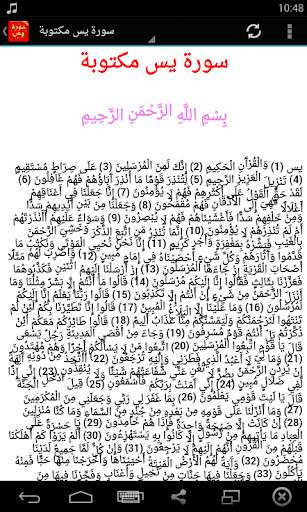 10:48
سورة يس مكتوبة
سورة يس مكتوبة
بِسْمِ اللَّهِ الرَّحْمَنِ الرَّحِيمِ
يس (1) وَالْقُرْآَنِ الْحَكِيمِ (2) إِنَّكَ لَمِنَ الْمُرْسَلِينَ (3) عَلَى صِرَاطٍ مُسْتَقِيمٍ
(4) تَنْزِيلَ الْعَزِيزِ الرَّحِيمِ (5) لِتُنْذِرَ قَوْمًا مَا أُنْذِرَ آَبَاؤُهُمْ فَهُمْ غَافِلُونَ (6)
لَقَدْ حَقَّ الْقَوْلُ عَلَى أَكْثَرِهِمْ فَهُمْ لَا يُؤْمِنُونَ (7) إِنَّا جَعَلْنَا فِي أَعْنَاقِهِمْ
أَغْلَالًا فَهِيَ إِلَى الْأَذْقَانِ فَهُمْ مُقْمَحُونَ (8) وَجَعَلْنَا مِنْ بَيْنِ أَيْدِيهِمْ سَدًّا
وَمِنْ خَلْفِهِمْ سَدًّا فَأَغْشَيْنَاهُمْ فَهُمْ لَا يُبْصِرُونَ (9) وَسَوَاءٌ عَلَيْهِمْ أَأَنْذَرْتَهُمْ
أَمْ لَمْ تُنْذِرْهُمْ لَا يُؤْمِنُونَ (10) إِنَّمَا تُنْذِرُ مَنِ اتَّبَعَ الذِّكْرَ وَخَشِيَ الرَّحْمَنَ
بِالْغَيْبِ فَبَشِّرْهُ بِمَغْفِرَةٍ وَأَجْرٍ كَرِيمٍ (11) إِنَّا نَحْنُ نُحْيِي الْمَوْتَى وَنَكْتُبُ مَا
قَدَّمُوا وَآَثَارَهُمْ وَكُلَّ شَيْءٍ أحْصَيْنَاهُ فِي إِمَامٍ مُبِينٍ (12) وَاضْرِبْ لَهُمْ مَثَلًا
أَصْحَابَ الْقَرْيَةِ إِذْ جَاءَهَا الْمُرْسَلُونَ (13) إِذْ أَرْسَلْنَا إِلَيْهِمُ اثْنَيْنِ فَكَذَّبُوهُمَا
فَعَزَّزْنَا بِثَالِثٍ فَقَالُوا إِنَّا إِلَيْكُمْ مُرْسَلُونَ (14) قَالُوا مَا أَنْتُمْ إِلَّا بَشَرٌ مِثْلُنَا وَمَا
أَنْزَلَ الرَّحْمَنُ مِنْ شَيْءٍ إِنْ أَنْتُمْ إِلَّا تَكْذِبُونَ (15) قَالُوا رَبُّنَا يَعْلَمُ إِنَّا إِلَيْكُمْ
لَمُرْسَلُونَ (16) وَمَا عَلَيْنَا إِلَّا الْبَلَاغُ الْمُبِينُ (17) قَالُوا إِنَّا تَطَيَّرْنَا بِكُمْ لَئِنْ لَمْ
تَنْتَهُوا لَنَرْجُمَنَّكُمْ وَلَيَمَسَّنَّكُمْ مِنَّا عَذَابٌ أَلِيمٌ (18) قَالُوا طَائِرُكُمْ مَعَكُمْ أَئِنْ
ذُكِّرْتُمْ بَلْ أَنْتُمْ قَوْمٌ مُسْرِفُونَ (19) وَجَاءَ مِنْ أَقْصَى الْمَدِينَةِ رَجُلٌ يَسْعَى
قَالَ يَا قَوْمِ اتَّبِعُوا الْمُرْسَلِينَ (20) اتَّبِعُوا مَنْ لَا يَسْأَلُكُمْ أَجْرًا وَهُمْ مُهْتَدُونَ
(21) وَمَا لِيَ لَا أَعْبُدُ الَّذِي فَطَرَنِي وَإِلَيْهِ تُرْجَعُونَ (22) أَأَتَّخِذُ مِنْ دُونِهِ آَلِهَةً
إِنْ يُرِدْنِ الرَّحْمَنُ بِضُرٍّ لَا تُغْنِ عَنِّي شَفَاعَتُهُمْ شَيْئًا وَلَا يُنْقِذُونِ (23) إِنِّي إِذًا
لَفِي ضَلَالٍ مُبِينٍ (24) إِنِّي آَمَنْتُ بِرَبِّكُمْ فَاسْمَعُونِ (25) قِيلَ ادْخُلِ الْجَنَّةَ
قَالَ يَا لَيْتَ قَوْمِي يَعْلَمُونَ (26) بِمَا غَفَرَ لِي رَبِّي وَجَعَلَنِي مِنَ الْمُكْرَمِينَ (27)
وَمَا أَنْزَلْنَا عَلَى قَوْمِهِ مِنْ بَعْدِهِ مِنْ جُنْدٍ مِنَ السَّمَاءِ وَمَا كُنَّا مُنْزِلِينَ
(28) إِنْ كَانَتْ إِلَّا صَيْحَةً وَاحِدَةً فَإِذَا هُمْ خَامِدُونَ (29) يَا حَسْرَةً عَلَى
الْعِبَادِ مَا يَأْتِيهِمْ مِنْ رَسُولٍ إِلَّا كَانُوا بِهِ يَسْتَهْزِئُونَ (30) أَلَمْ يَرَوْا كَمْ أَهْلَكْنَا
قَبْلَهُمْ مِنَ الْقُرُونِ أَنَّهُمْ إِلَيْهِمْ لَا يَرْجِعُونَ (31) وَإِنْ كُلٌّ لَمَّا جَمِيعٌ لَدَيْنَا
مُحْضَرُونَ (32) وَآَيَةٌ لَهُمُ الْأَرْضُ الْمَيْتَةُ أَحْيَيْنَاهَا وَأَخْرَجْنَا مِنْهَا حَبًّا فَمِنْهُ
يَأْكُلُونَ (33) وَجَعَلْنَا فِيهَا جَنَّاتٍ مِنْ نَخِيلٍ وَأَعْنَابٍ وَفَجَّرْنَا فِيهَا مِنَ